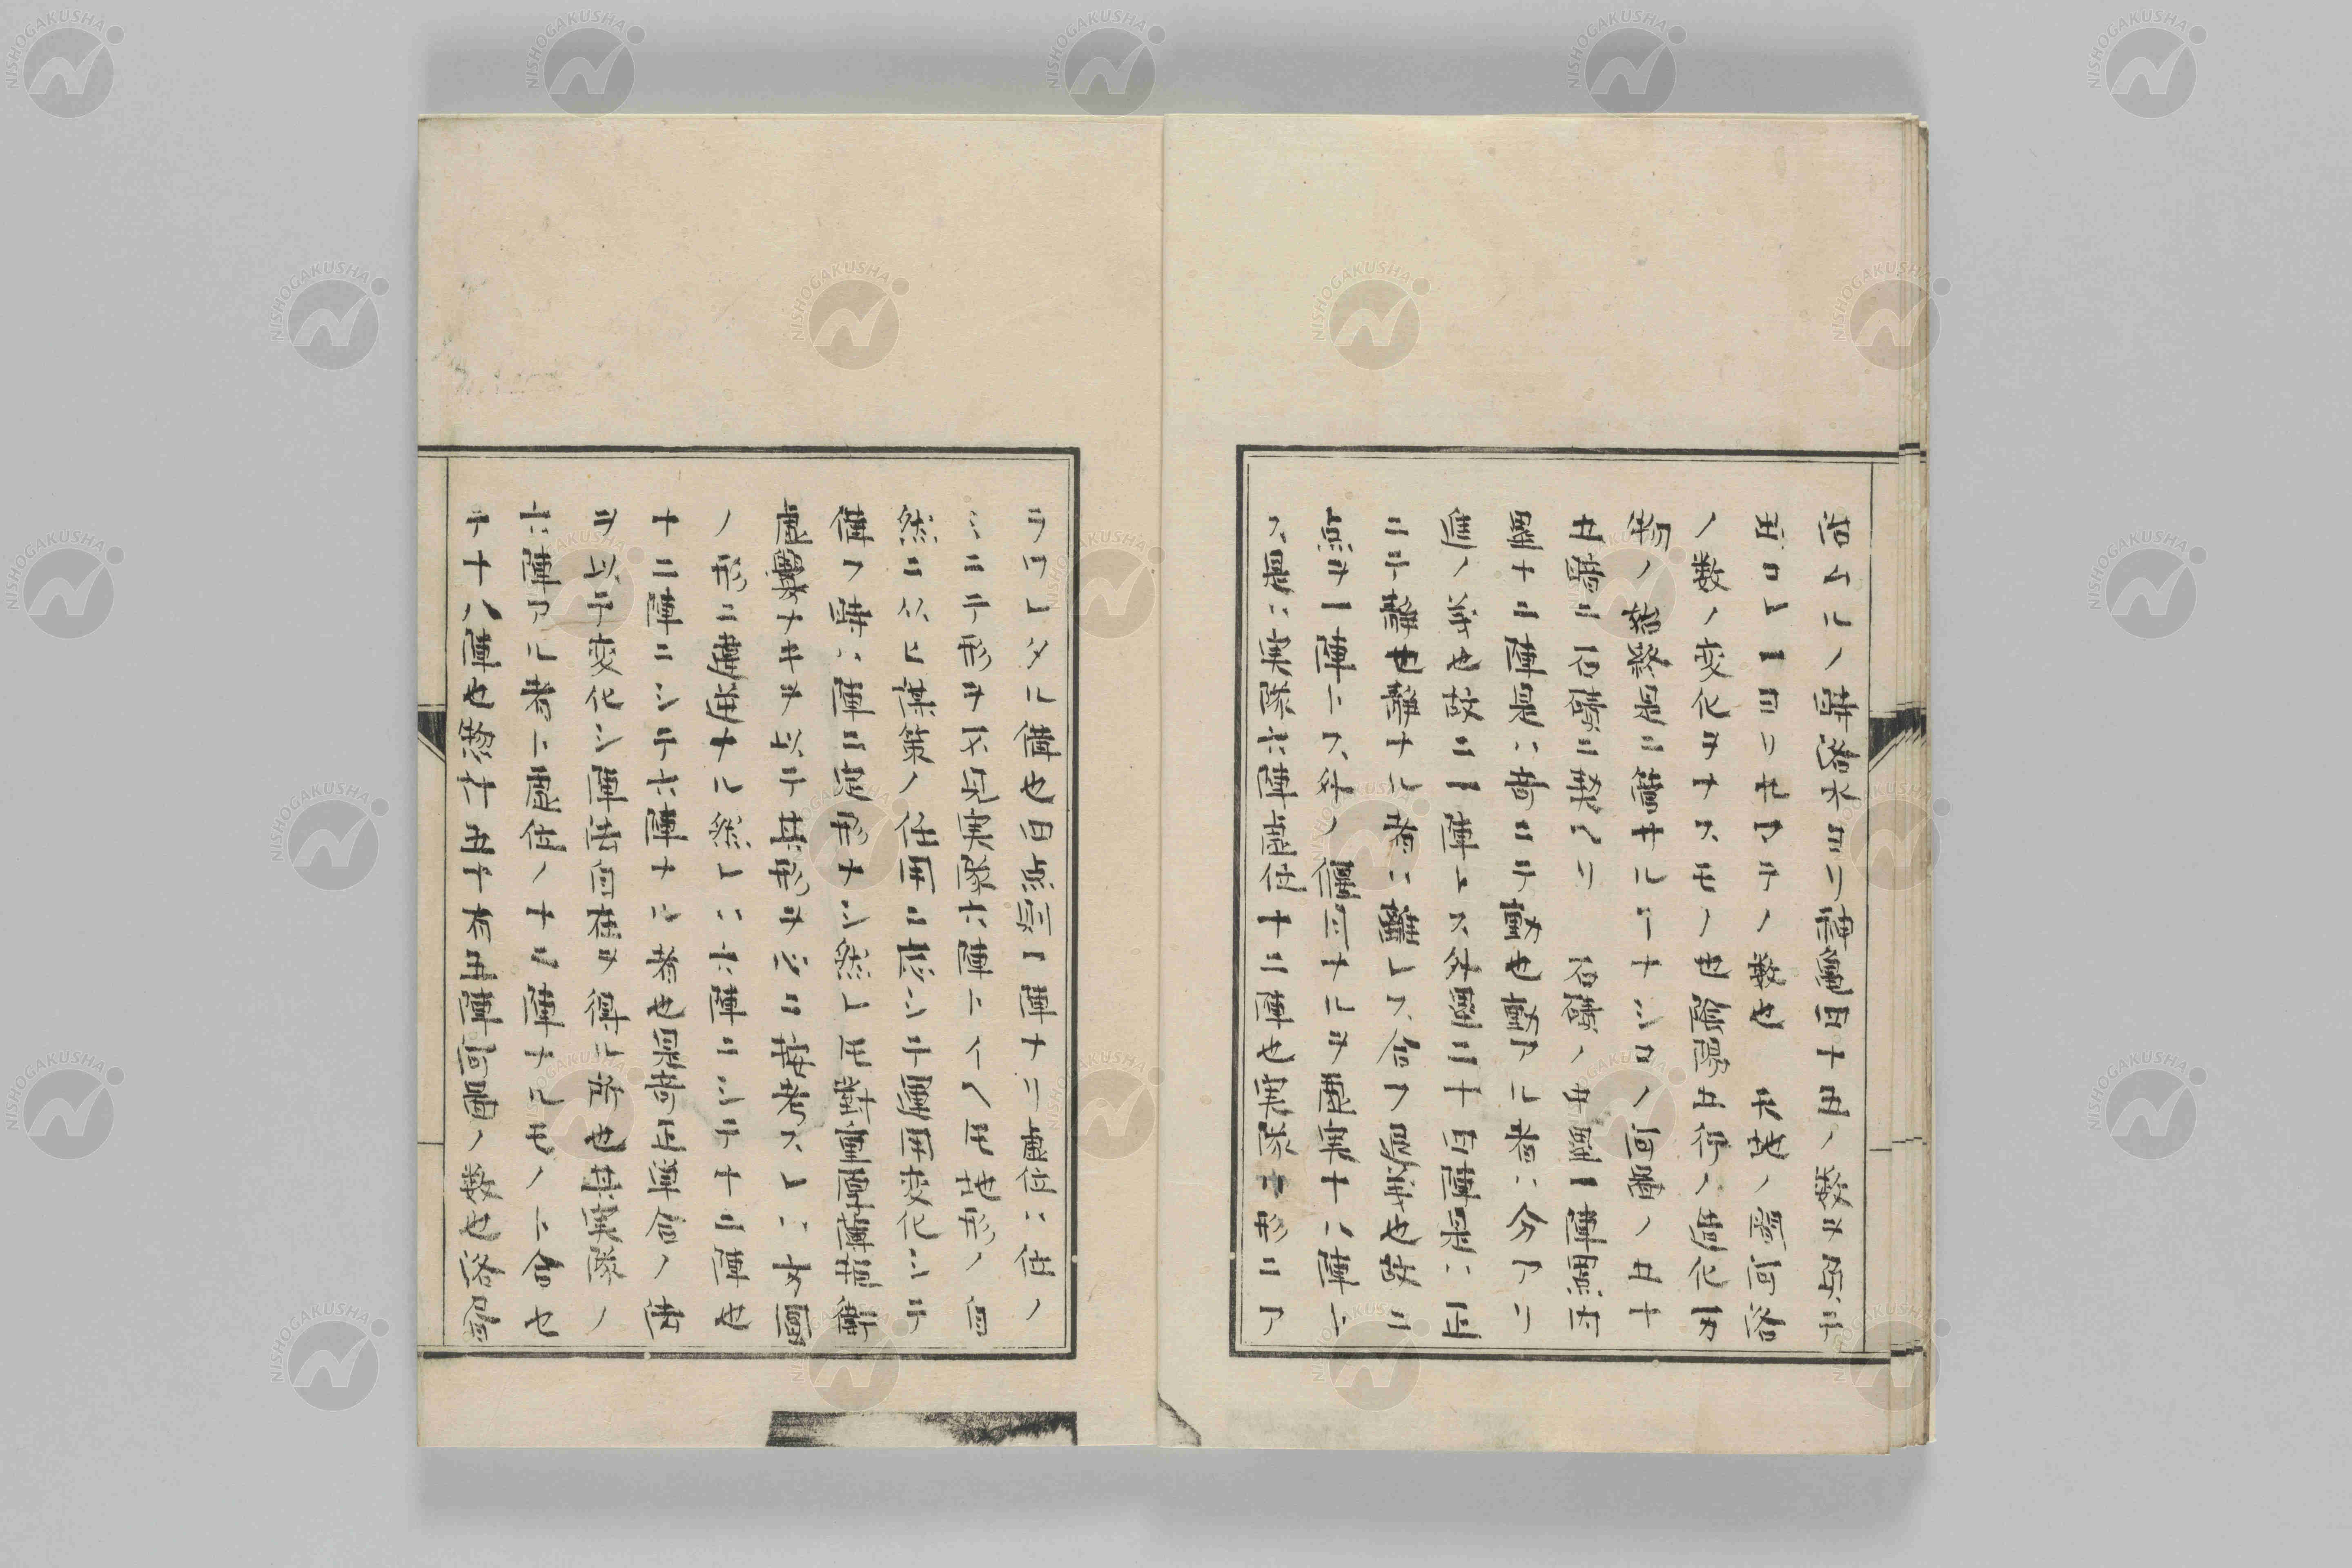 治ムルノ時洛水ヨリ神亀四十五ノ数ヲ負テ
出ロレ一ヨリ九マテノ数也 天地ノ間河洛
ノ数ノ変化ヲナスモノ也陰陽五行ノ造化万
物ノ始終是ニ備ハルナシロノ河圖ノ五十
五暗ニ石礦ニ聚アリ 石礦ノ四聖一陣黒内
聖十二陣是ハ奇ニテ動也動アル者ハ分アリ
隻ノ義也故ニ一陣トス外聖三十四陣是ハ正
ニテ静也静ナル者ハ離レス合フ居義也故ニ
無ヲ一陣トス外ノ備四ナルヲ虚実十八陣ト
ス是ハ実隊六陣虚伍十二陣也実隊ハ形ニア
ラワレタル備也曰点則一陣ナリ虚伍ハ伍ノ
ミニテ形ヲ不見実隊六陣トイヘ𪜈地形ノ自
然ニ从ヒ謀策ノ任用ニ應シテ運用変化シテ
備フ時ハ陣ニ定形ナシ然レ𪜈對車陣陣握衝
虚翼ナキヲ以テ其形ヲ以ニ按考スレハ方圓
ノ形ニ連座ナル然レハ六陣ニシテ十二陣也
十二陣ニシテ六陣ナル者也是奇正渾合ノ法
ヲ以テ変化シ陣法自在ヲ得ル所也其実隊ノ
六陣アル者ト虚伍ノ十二陣ナルモノト合セ
テ十八陣也惣計五十有五陣河圖ノ数也洛房